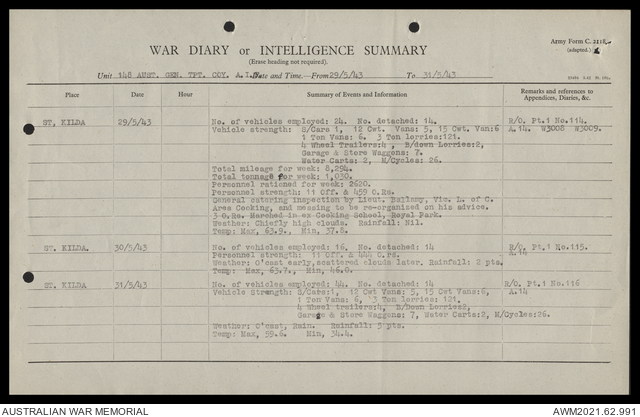 Army Form C. 2118.
(adapted.)
WAR DIARY or INTELLIGENCE SUMMARY
(Erase heading not required).
Unit 148 AUST. GEN. TPT. COY. A.I.F. Date and Time.—From 29/5/43 To 31/5/43
Place Date Hour Summary of Events and Information Remarks and references to Appendices, Diaries, &c.
ST. KILDA 29/5/43 No. of vehicles employed: 24. No. detached: 14. R/O. Pt.1 No.114.
Vehicle strength: S/Cars 1, 12 Cwt. Vans: 5, 15 Cwt. Van:6 A.14. W3008 W3009.
1 Ton Vans: 6. 3 Ton lorries:121.
4 Wheel Trailers:4, B/down Lorries:2,
Garage & Store Waggons: 7.
Water Carts: 2, M/Cycles: 26.
Total mileage for week: 8,294.
Total tonnage for week: 1,030.
Personnel rationed for week: 2620.
Personnel strength: 11 Off. & 459 O.Rs.
General catering inspection by Lieut. Bellamy, Vic. L. of C.
Area Cooking, and messing to be re-organized on his advice.
3 O.Rs. Marched in ex Cooking School, Royal Park.
Weather: Chiefly high clouds. Rainfall: Nil.
Temp: Max, 63.9., Min, 37.8.
ST. KILDA. 30/5/43 No. of vehicles employed: 16, No. detached: 14 R/O. Pt.1 No.115.
Personnel strength: 11 Off. & 444 O.Rs. A.14
Weather: O'cast early, scattered clouds later. Rainfall: 2 pts.
Temp: Max, 63.7., Min, 46.0.
ST. KILDA 31/5/43 No. of vehicles employed: 44. No. detached: 14 R/O. Pt.1 No.116
Vehicle Strength: S/Cars:1, 12 Cwt Vans: 5, 15 Cwt Vans:6, A.14
1 Ton Vans: 6, 3 Ton lorries: 121.
4 Wheel trailers:4, B/Down Lorries:2,
Garage & Store Waggons: 7, Water Carts:2, M/Cycles:26.
Weather: O'cast, Rain. Rainfall: 5 pts.
Temp: Max, 59.6. Min, 34.4.
AUSTRALIAN WAR MEMORIAL AWM2021.62.991